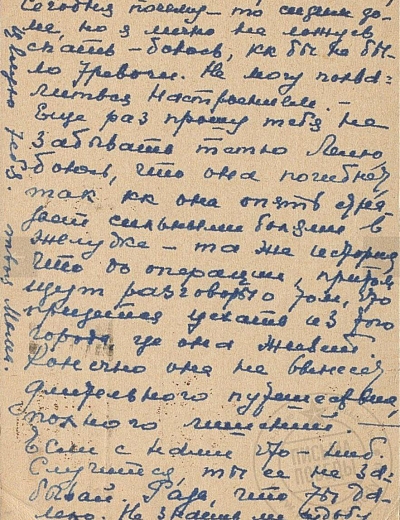 Сегодня почему-то сидим до-
ме, но я лично не могу
спать - боюсь, кк бы не бы-
ло тревоги. Не могу похва-
литься настроением. -
Еще раз прошу тебя не
забывать тетю Лену,
боюсь, что она погибнет,
так кк она опять стра-
дает сильными болями в
желудке - та же история
что до операции, притом
идут разговоры о том, что
придется уехать из того
города где она живет.
Конечно она не вынесет
длительного путешествия,
полного лишений -
Если с нами что ниб.
случится, ты ее не за-
бывай. Рада, что ты да-
леко. Не знаешь
Целую тебя. твоя Мама.
ПИСЬМА
ПОБЕДЫ